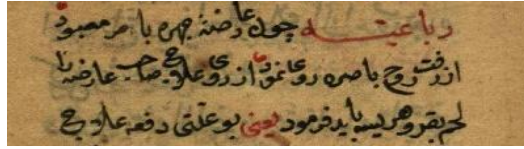 رباعیـــه چون عارضهٔ جهره با مر معبود
از رفت روح باصره رو عا نمود از روی علاج صاحب عارضه را
لحم بقر و هریسه باید فرمود یعنی بوعلتی دفعه علاج